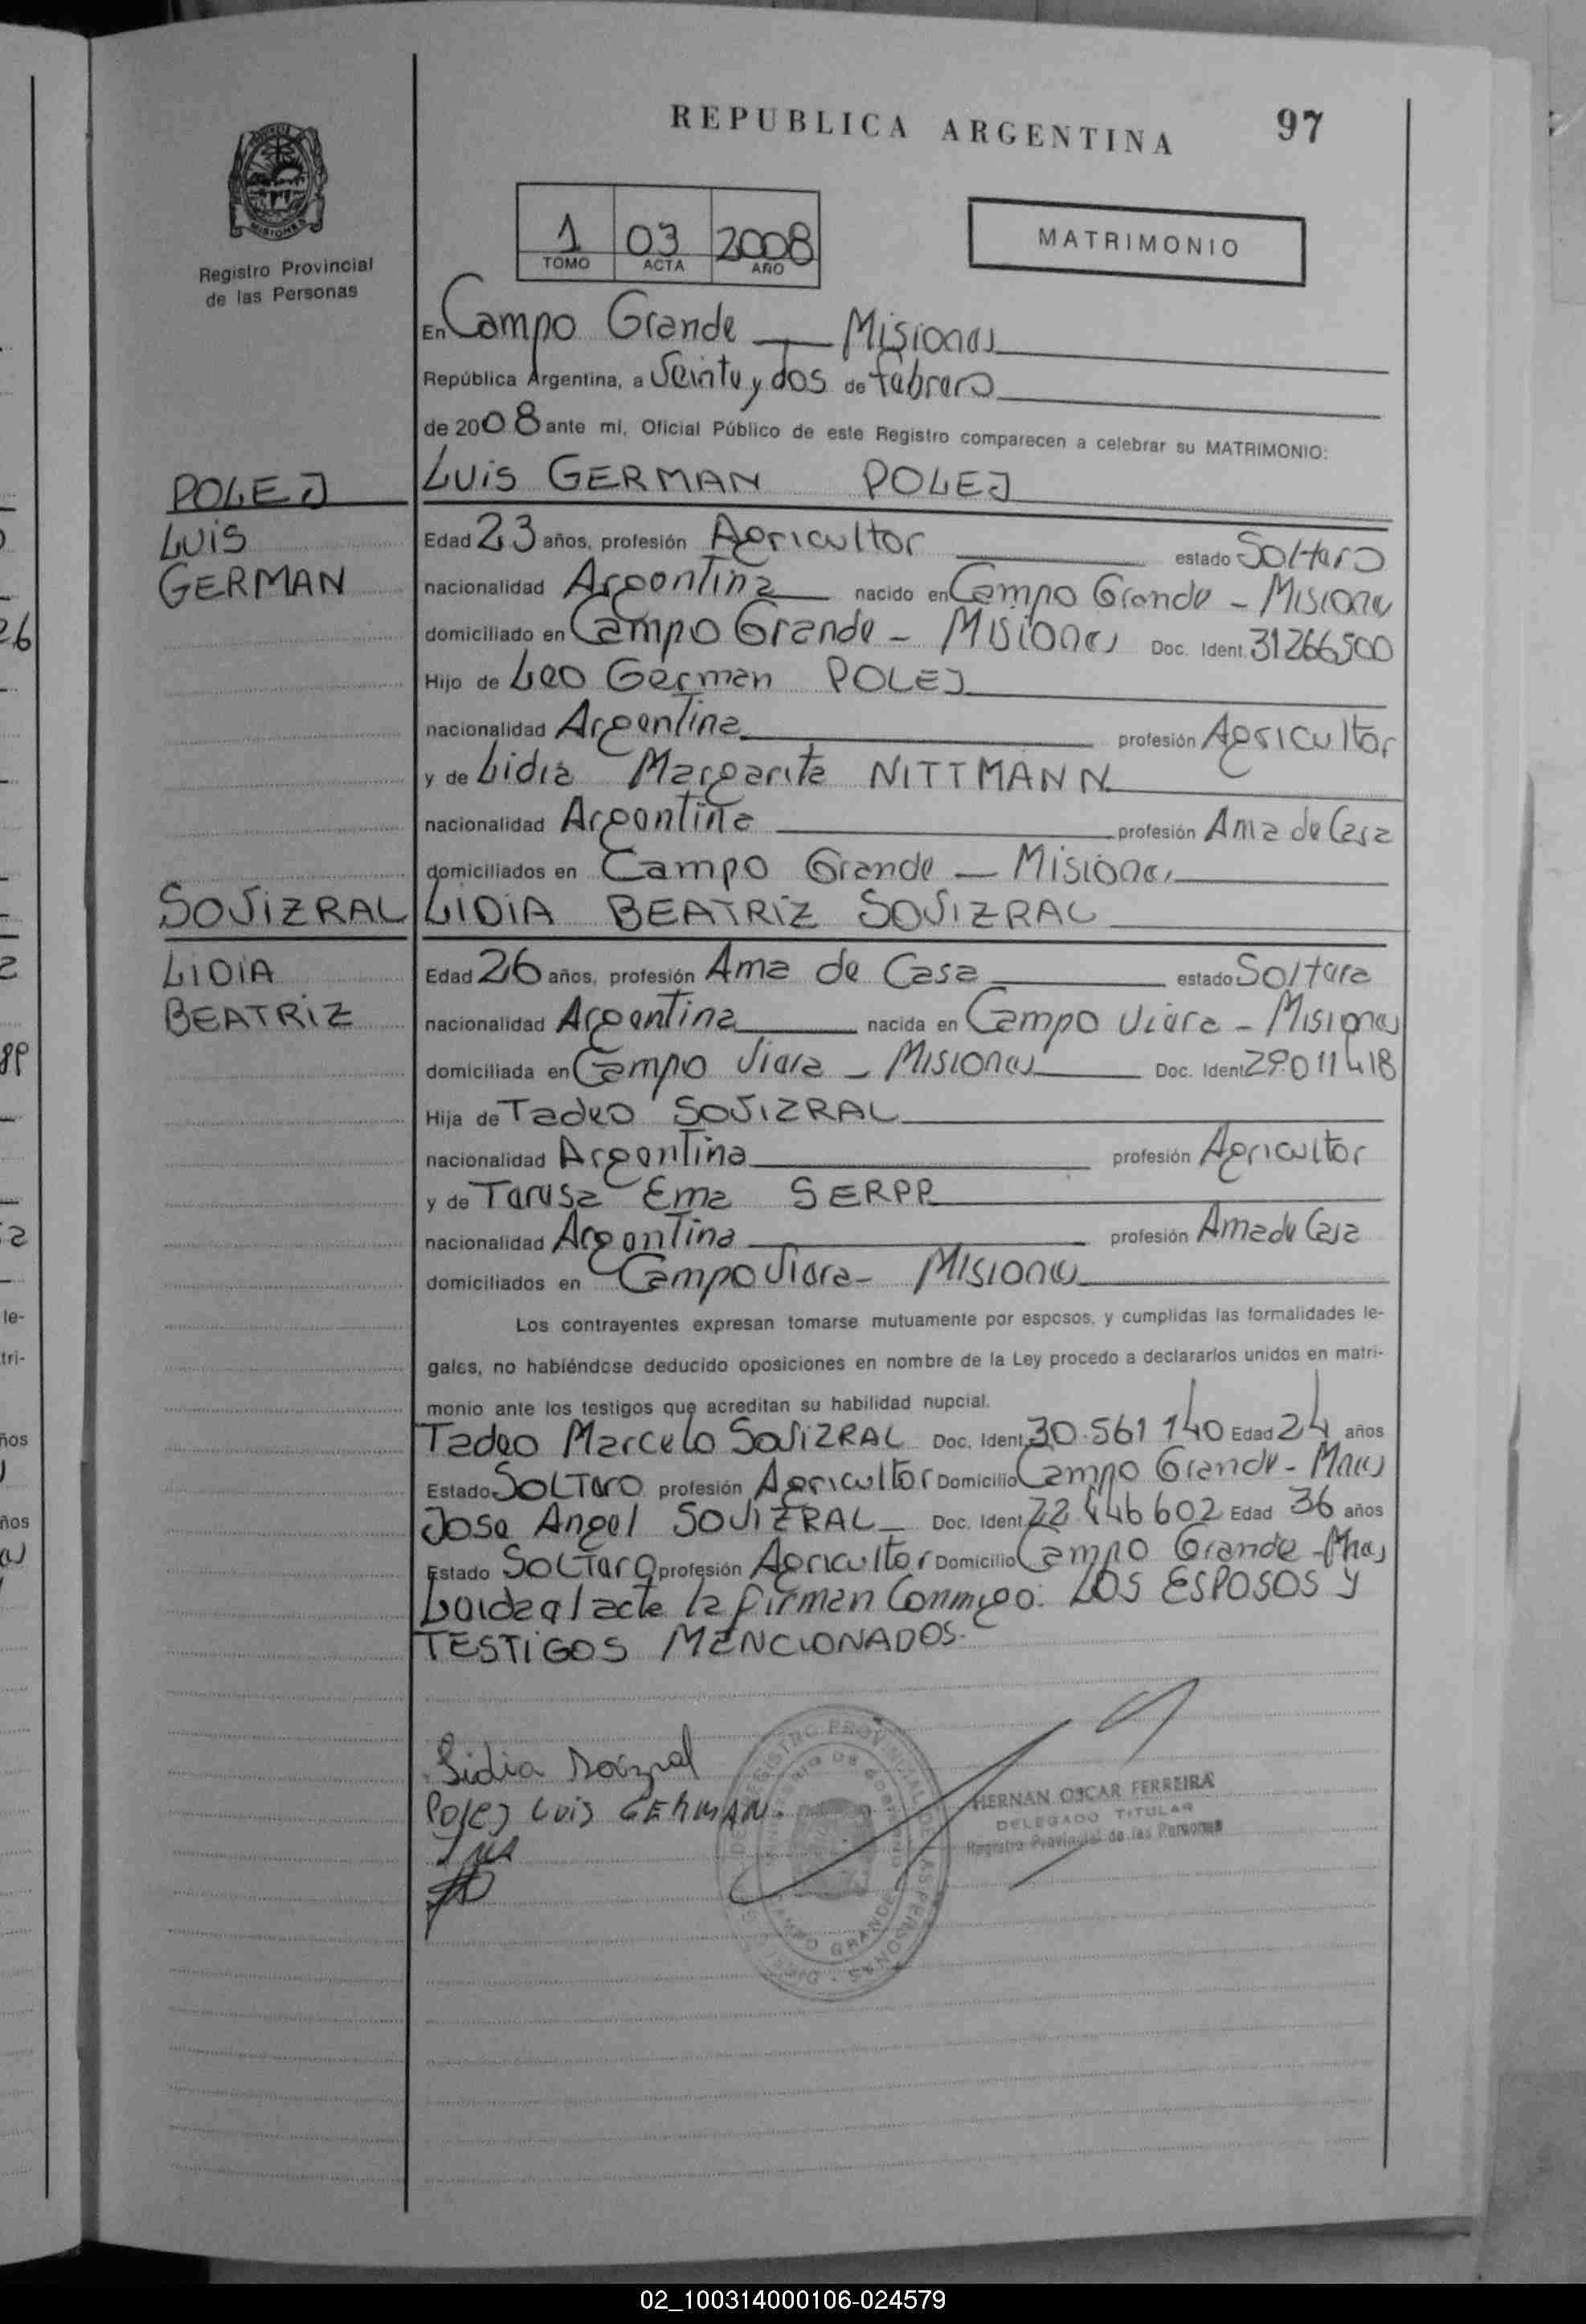 REPUBLICA ARGENTINA
97
Registro Provincial
de las Personas
1 03 2008
TOMO ACTA AÑO
MATRIMONIO
En Campo Grande — Misiones
República Argentina, a Veinte y dos de febrero
de 2008 ante mí, Oficial Público de este Registro comparecen a celebrar su MATRIMONIO:
POLEJ
LUIS GERMAN POLEJ
LUIS
Edad 23 años, profesión Agricultor estado Soltero
GERMAN
nacionalidad Argentina nacido en Campo Grande - Misiones
domiciliado en Campo Grande - Misiones Doc. Ident. 31266500
Hijo de Leo German POLEJ
nacionalidad Argentina profesión Agricultor
y de Lidia Margarita NITTMANN
nacionalidad Argentina profesión Ama de Casa
domiciliados en Campo Grande — Misiones
SOVIZRAL
LIDIA BEATRIZ SOVIZRAL
LIDIA
Edad 26 años, profesión Ama de Casa estado Soltera
BEATRIZ
nacionalidad Argentina nacida en Campo Viera - Misiones
domiciliada en Campo Viera - Misiones Doc. Ident 29011418
Hija de Tadeo SOVIZRAL
nacionalidad Argentina profesión Agricultor
y de Teresa Ema SERPP
nacionalidad Argentina profesión Ama de Casa
domiciliados en Campo Viera - Misiones
Los contrayentes expresan tomarse mutuamente por esposos, y cumplidas las formalidades le-
gales, no habiéndose deducido oposiciones en nombre de la Ley procedo a declararlos unidos en matri-
monio ante los testigos que acreditan su habilidad nupcial.
Tadeo Marcelo SOVIZRAL Doc. Ident. 30.561 140 Edad 24 años
Estado SOLTERO profesión Agricultor Domicilio Campo Grande - Mnes
Jose Angel SOVIZRAL Doc. Ident. 22.446602 Edad 36 años
Estado SOLTERO profesión Agricultor Domicilio Campo Grande - Mnes
Leida el acta la firman Conmigo: LOS ESPOSOS Y
TESTIGOS MENCIONADOS.
Lidia Sovizral
Polej Luis GERMAN.
HERNAN OSCAR FERREIRA
DELEGADO TITULAR
Registro Provincial de las Personas
CAMPO GRANDE
02_100314000106-024579